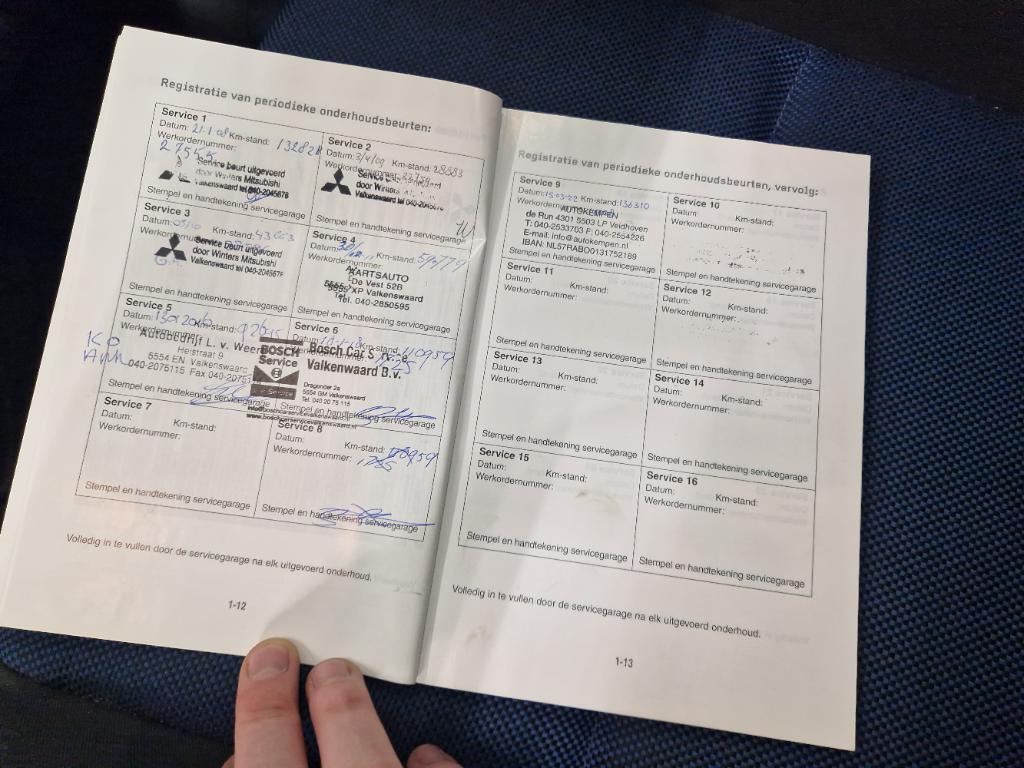 Registratie van periodieke onderhoudsbeurten:
Service 1
Datum: 21-1-08 Km-stand: 13282
Werkordernummer:
27555
Service beurt uitgevoerd
door Winters Mitsubishi
Valkenswaard tel 040-2045678
Stempel en handtekening servicegarage
Service 2
Datum: 3/4/09 Km-stand: 28583
Werkordernummer:
Service
door Winters
Valkenswaard tel 040-2045678
Stempel en handtekening servicegarage
Service 3
Datum: Km-stand:
Werkordernummer:
Service beurt uitgevoerd
door Winters Mitsubishi
Valkenswaard tel 040-2045678
Stempel en handtekening servicegarage
Service 4
Datum: Km-stand: 59779
Werkordernummer:
KARTSAUTO
De Vest 52B
5555 XP Valkenswaard
Tel. 040-2850595
Stempel en handtekening servicegarage
Service 5
Datum: Km-stand:
Werkordernummer:
Autobedrijf L. v. Weert
Heistraat 9
5554 EN Valkenswaard
040-2075115 Fax 040-2075
Stempel en handtekening servicegarage
Service 6
Datum: Km-stand: 110959
Werkordernummer:
BOSCH
Service
Bosch Car Service
Valkenwaard B.v.
Dragonder 2a
5554 GM Valkenswaard
Tel. 040 20 75 115
info@boschcarservicevalkenswaard.nl
www.boschcarservicevalkenswaard.nl
Stempel en handtekening servicegarage
Service 7
Datum: Km-stand:
Werkordernummer:
Stempel en handtekening servicegarage
Service 8
Datum: Km-stand:
Werkordernummer:
Stempel en handtekening servicegarage
Volledig in te vullen door de servicegarage na elk uitgevoerd onderhoud.
1-12
Registratie van periodieke onderhoudsbeurten, vervolg:
Service 9
Datum: 15-03-22 Km-stand: 136310
Werkordernummer:
AUTOKEMPEN
de Run 4301 5503 LP Veldhoven
T: 040-2533703 F: 040-2554226
E-mail: info@autokempen.nl
IBAN: NL57RABO0131752189
Stempel en handtekening servicegarage
Service 10
Datum Km-stand:
Werkordernummer:
Stempel en handtekening servicegarage
Service 11
Datum: Km-stand:
Werkordernummer:
Stempel en handtekening servicegarage
Service 12
Datum: Km-stand:
Werkordernummer:
Stempel en handtekening servicegarage
Service 13
Datum: Km-stand:
Werkordernummer:
Stempel en handtekening servicegarage
Service 14
Datum: Km-stand:
Werkordernummer:
Stempel en handtekening servicegarage
Service 15
Datum: Km-stand:
Werkordernummer:
Stempel en handtekening servicegarage
Service 16
Datum: Km-stand:
Werkordernummer:
Stempel en handtekening servicegarage
Volledig in te vullen door de servicegarage na elk uitgevoerd onderhoud.
1-13